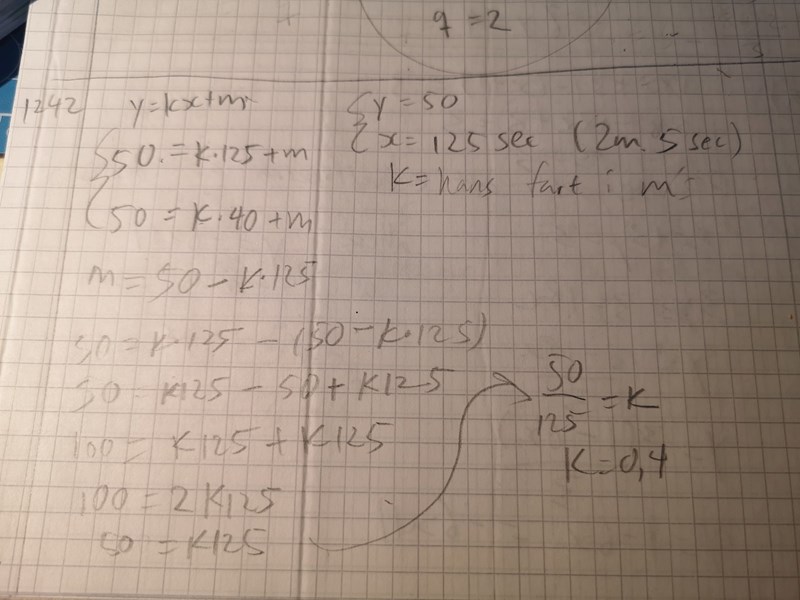 q = 2
1242 y = kx + m
{ 50 = K·125 + m
{ 50 = K·40 + m
{ y = 50
{ x = 125 sec (2m 5 sec)
K = hans fart i m
m = 50 - K·125
50 = K·125 - (50 - K·125)
50 = K125 - 50 + K125
100 = K125 + K125
100 = 2K125
50 = K125
50/125 = K
K = 0,4